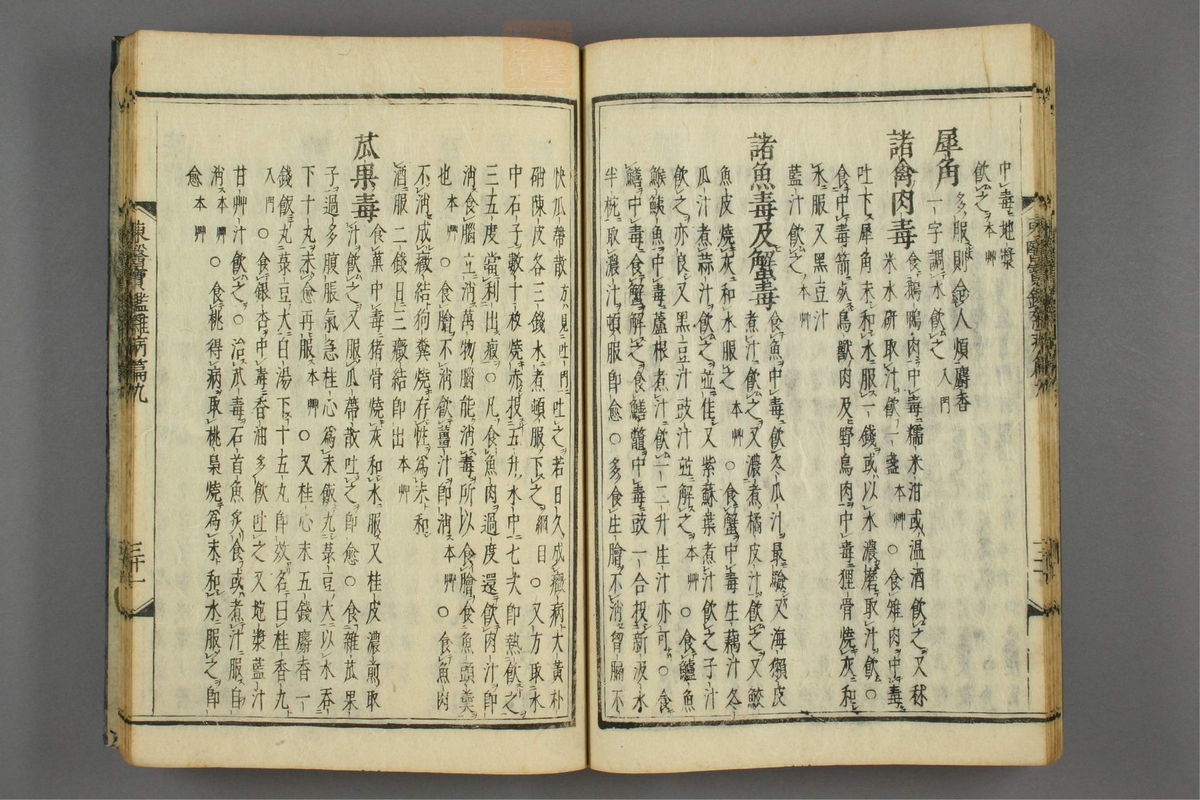 中毒地漿
飲之 本艸
犀角 多服則令人煩麝香
一字調水飲之 入門
諸禽肉毒 食鵝鴨肉中毒糯米泔或温酒飲之又秫
米水研取汁飲一盞 本艸 ○食雉肉中毒
吐下犀角末和水服一錢或以水濃磨取汁飲○
食中毒箭死鳥獸肉及野鳥肉中毒狸骨燒灰和
水服又黑豆汁
藍汁飲之 本艸
諸魚毒及蟹毒 食魚中毒飲冬瓜汁最驗又海獺皮
煮汁飲之又濃煮橘皮汁飲之又鮫
魚皮燒灰和水服之 本艸 ○食蟹中毒生藕汁冬
瓜汁煮蒜汁飲之並佳又紫蘇葉煮汁飲之子汁
飲之亦良又黑豆汁豉汁並解之 本艸 ○食鱸魚
鯸鮧魚中毒蘆根煮汁飲一二升生汁亦可○食
鱔中毒食蟹解之食鱔鼈中毒豉一合投新汲水
半椀取濃汁頓服即愈○多食生膾不消胷膈不
快瓜蔕散 方見吐門 吐之若日久成癥病大黃朴
硝陳皮各三錢水煮頓服下之 綱目 ○又方取水
中石子數十枚燒赤投五升水中七次即熱飲之
三五度當利出瘕○凡食魚肉過度還飲肉汁即
消食腦立消萬物腦能消毒所以食膾食魚頭羮
也 本艸 ○食膾不消飲薑汁即消 本艸 ○食魚肉
不消成癥結狗糞燒存性爲末和
酒服二錢日三癥結即出 本艸
苽果毒 食菓中毒猪骨燒灰和水服又桂皮濃煎取
汁飲之又服瓜蔕散吐之即愈○食雜苽果
子過多腹脹氣急桂心爲末飯丸菉豆大以水吞
下十丸未愈再服 本艸 ○又桂心末五錢麝香一
錢飯丸菉豆大白湯下十五丸即效名曰桂香丸
入門
甘艸汁飲之○治苽毒石首魚炙食或煮汁服自
消 本艸 ○食銀杏中毒香油多飲吐之又地漿藍汁
○食桃得病取桃梟燒爲末和水服之即
愈 本艸
東醫寶鑑雜病篇九
三十一